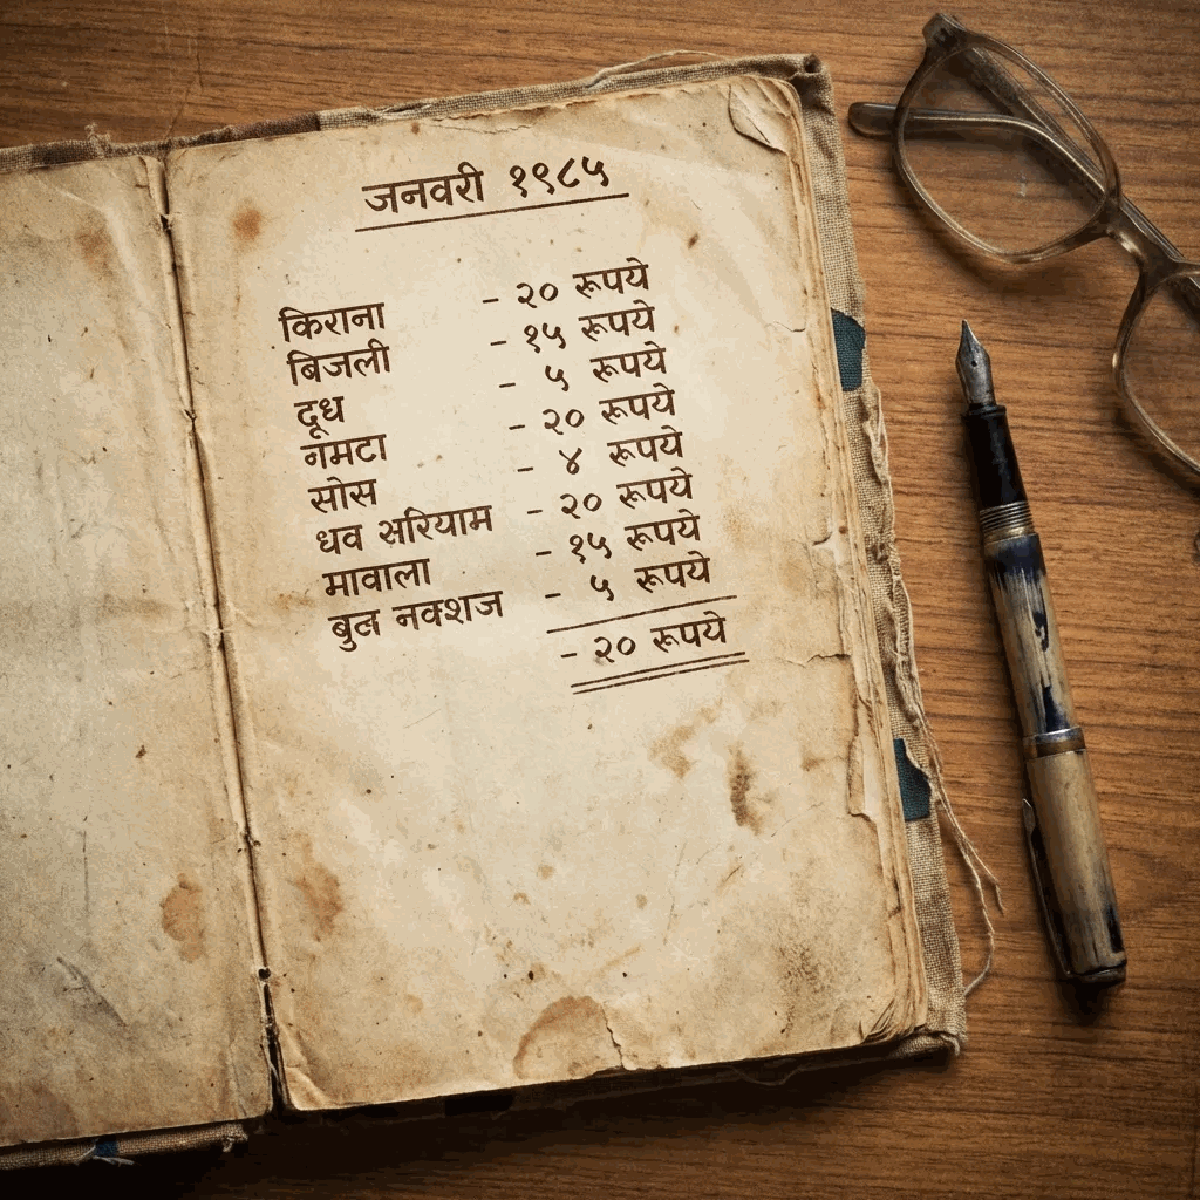 जनवरी १९८५
किराना - २० रूपये
बिजली - १५ रूपये
दूध - ५ रूपये
नमटा - २० रूपये
सोस - ४ रूपये
धव सरियाम - २० रूपये
मावाला - १५ रूपये
बुल नक्शज - ५ रूपये
- २० रूपये